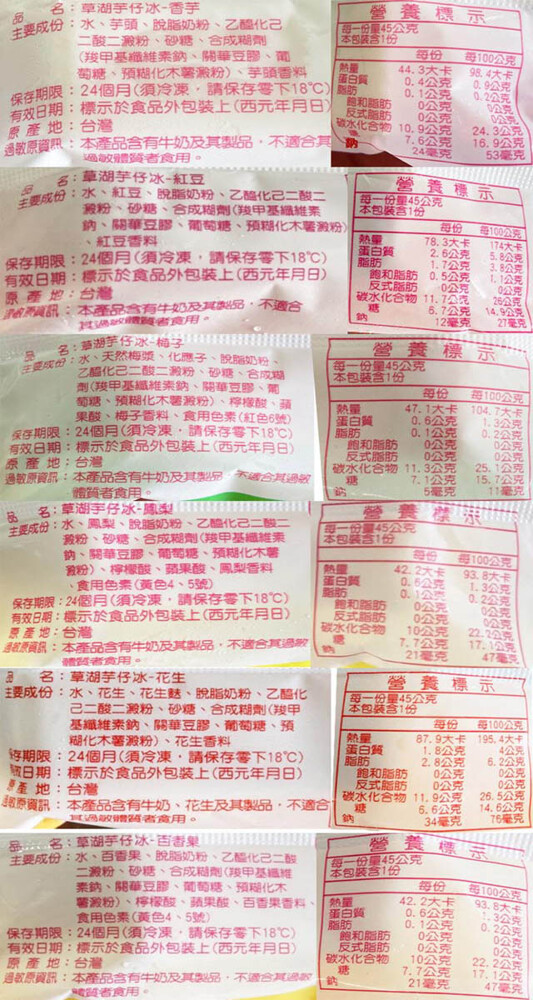 品　　名：草湖芋仔冰-香芋
主要成份：水、芋頭、脫脂奶粉、乙醯化己
二酸二澱粉、砂糖、合成糊劑
(羧甲基纖維素鈉、關華豆膠、葡
萄糖、預糊化木薯澱粉)、芋頭香料
保存期限：24個月(須冷凍，請保存零下18℃)
有效日期：標示於食品外包裝上(西元年月日)
原 產 地：台灣
過敏原資訊：本產品含有牛奶及其製品，不適合其
過敏體質者食用。
營養標示
每一份量45公克
本包裝含1份
每份 每100公克
熱量 44.3大卡 98.4大卡
蛋白質 0.4公克 0.9公克
脂肪 0.1公克 0.2公克
飽和脂肪 0公克 0公克
反式脂肪 0公克 0公克
碳水化合物 10.9公克 24.3公克
糖 7.6公克 16.9公克
鈉 24毫克 53毫克
品　　名：草湖芋仔冰-紅豆
主要成份：水、紅豆、脫脂奶粉、乙醯化己二酸二
澱粉、砂糖、合成糊劑(羧甲基纖維素
鈉、關華豆膠、葡萄糖、預糊化木薯澱粉)
、紅豆香料
保存期限：24個月(須冷凍，請保存零下18℃)
有效日期：標示於食品外包裝上(西元年月日)
原 產 地：台灣
過敏原資訊：本產品含有牛奶及其製品，不適合
其過敏體質者食用。
營養標示
每一份量45公克
本包裝含1份
每份 每100公克
熱量 78.3大卡 174大卡
蛋白質 2.6公克 5.8公克
脂肪 1.7公克 3.8公克
飽和脂肪 0.5公克 1.1公克
反式脂肪 0公克 0公克
碳水化合物 11.7公克 26公克
糖 6.7公克 14.9公克
鈉 12毫克 27毫克
品　　名：草湖芋仔冰-梅子
主要成份：水、天然梅漿、化應子、脫脂奶粉、
乙醯化己二酸二澱粉、砂糖、合成糊
劑(羧甲基纖維素鈉、關華豆膠、葡
萄糖、預糊化木薯澱粉)、檸檬酸、蘋
果酸、梅子香料、食用色素(紅色6號)
保存期限：24個月(須冷凍，請保存零下18℃)
有效日期：標示於食品外包裝上(西元年月日)
原 產 地：台灣
過敏原資訊：本產品含有牛奶及其製品，不適合其過敏
體質者食用。
營養標示
每一份量45公克
本包裝含1份
每份 每100公克
熱量 47.1大卡 104.7大卡
蛋白質 0.6公克 1.3公克
脂肪 0.1公克 0.2公克
飽和脂肪 0公克 0公克
反式脂肪 0公克 0公克
碳水化合物 11.3公克 25.1公克
糖 7.1公克 15.7公克
鈉 5毫克 11毫克
品　　名：草湖芋仔冰-鳳梨
主要成份：水、鳳梨、脫脂奶粉、乙醯化己二酸二
澱粉、砂糖、合成糊劑(羧甲基纖維素
鈉、關華豆膠、葡萄糖、預糊化木薯
澱粉)、檸檬酸、蘋果酸、鳳梨香料
、食用色素(黃色4、5號)
保存期限：24個月(須冷凍，請保存零下18℃)
有效日期：標示於食品外包裝上(西元年月日)
原 產 地：台灣
過敏原資訊：本產品含有牛奶及其製品，不適合其過敏
體質者食用。
營養標示
每一份量45公克
本包裝含1份
每份 每100公克
熱量 42.2大卡 93.8大卡
蛋白質 0.6公克 1.3公克
脂肪 0.1公克 0.2公克
飽和脂肪 0公克 0公克
反式脂肪 0公克 0公克
碳水化合物 10公克 22.2公克
糖 7.7公克 17.1公克
鈉 21毫克 47毫克
品　　名：草湖芋仔冰-花生
主要成份：水、花生、花生麩、脫脂奶粉、乙醯化
己二酸二澱粉、砂糖、合成糊劑(羧甲
基纖維素鈉、關華豆膠、葡萄糖、預
糊化木薯澱粉)、花生香料
存期限：24個月(須冷凍，請保存零下18℃)
效日期：標示於食品外包裝上(西元年月日)
產 地：台灣
過敏原資訊：本產品含有牛奶、花生及其製品，不適合
其過敏體質者食用。
營養標示
每一份量45公克
本包裝含1份
每份 每100公克
熱量 87.9大卡 195.4大卡
蛋白質 1.8公克 4公克
脂肪 2.8公克 6.2公克
飽和脂肪 0公克 0公克
反式脂肪 0公克 0公克
碳水化合物 11.9公克 26.5公克
糖 6.6公克 14.6公克
鈉 34毫克 76毫克
品　　名：草湖芋仔冰-百香果
主要成份：水、百香果、脫脂奶粉、乙醯化己二酸
二澱粉、砂糖、合成糊劑(羧甲基纖維
素鈉、關華豆膠、葡萄糖、預糊化木
薯澱粉)、檸檬酸、蘋果酸、百香果香料、
食用色素(黃色4、5號)
保存期限：24個月(須冷凍，請保存零下18℃)
有效日期：標示於食品外包裝上(西元年月日)
原 產 地：台灣
過敏原資訊：本產品含有牛奶及其製品，不適合其過敏
體質者食用。
營養標示
每一份量45公克
本包裝含1份
每份 每100公克
熱量 42.2大卡 93.8大卡
蛋白質 0.6公克 1.3公克
脂肪 0.1公克 0.2公克
飽和脂肪 0公克 0公克
反式脂肪 0公克 0公克
碳水化合物 10公克 22.2公克
糖 7.7公克 17.1公克
鈉 21毫克 47毫克